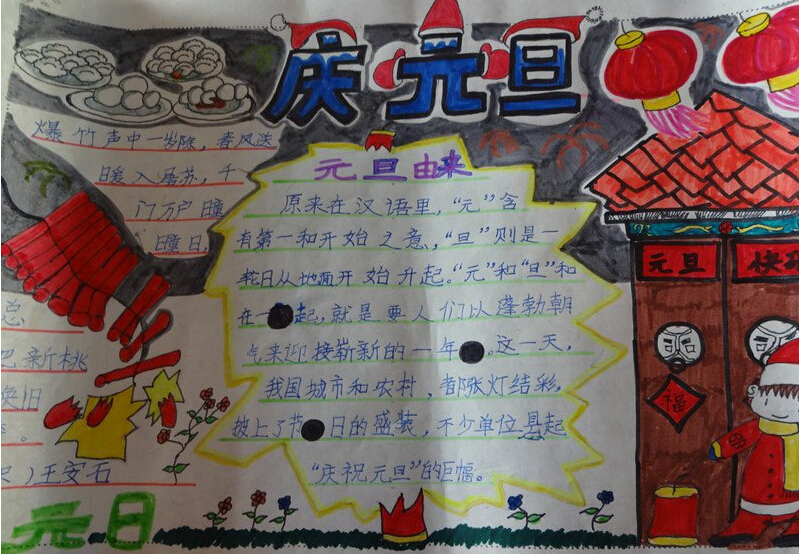 庆元旦
爆竹声中一岁除,春风送
暖入屠苏,千
门万户瞳
瞳日,
总
把新桃
换旧
。
)王安石
元日
元旦由来
原来在汉语里,“元”含
有第一和开始之意,“旦”则是一
轮日从地面开始升起。“元”和“旦”和
在一起,就是要人们以蓬勃朝
气来迎接崭新的一年。这一天,
我国城市和农村,都张灯结彩,
披上了节日的盛装,不少单位悬起
“庆祝元旦”的巨幅。
元旦
快
福